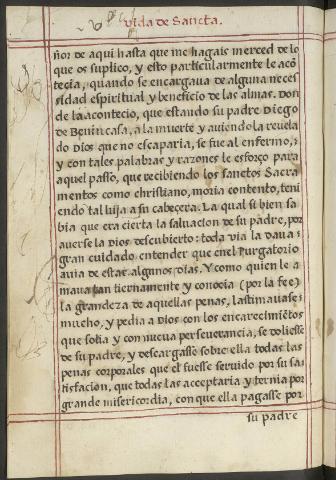 vida de Sancta.
ño: de aqui hasta que me hagais merced de lo
que os suplico, y esto particularmente le acõ
tecia, quando se encargaua de alguna neces
sidad espiritual y beneficio de las almas. Don
de la acontecio, que estando su padre Diego
de Benincasa, a la muerte y auiendola reuela
do Dios que no escaparia, se fue al enfermo,
y con tales palabras y razones le esforço para
aquel passo, que recibiendo los sanctos Sacra
mentos como christiano, moria contento, teni
endo tal hija a su cabeçera. La qual si bien sa
bia que era cierta la saluacion de su padre, por
auerse la Dios descubierto: toda via la daua
gran cuidado entender que en el purgatorio
auia de estar algunos dias. Y como quien le a
maua tan tiernamente y conocia (por la fee)
la grandeza de aquellas penas, lastimauase
mucho, y pedia a Dios con los encarecimiẽtos
que solia y con nueua perseuerancia, se doliesse
de su padre, y descargasse sobre ella todas las
penas corporales que el fuesse seruido por su sa
tisfacion, que todas las acceptaria y ternia por
grande misericordia, con que ella pagasse por
su padre